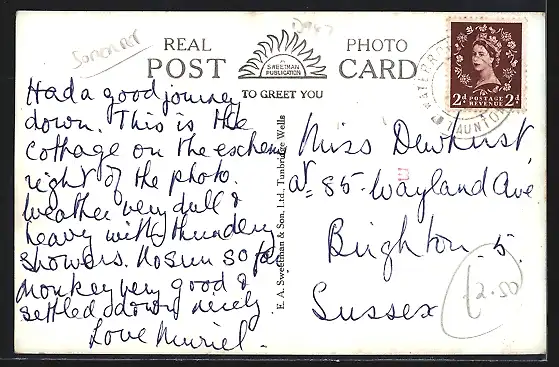 SOMERSET
REAL PHOTO
POST CARD
A SWEETMAN PUBLICATION
TO GREET YOU
2d POSTAGE REVENUE 2d
TAUNTON
Had a good journey
down. This is the
cottage on the extreme
right of the photo.
Weather very dull &
heavy with thundery
showers. No sun so far
Monkey very good &
settled down nicely.
Love Muriel.
E. A. Sweetman & Son, Ltd., Tunbridge Wells
Miss Dewhurst,
at 85 Wayland Ave
Brighton. 5.
Sussex
£2.50